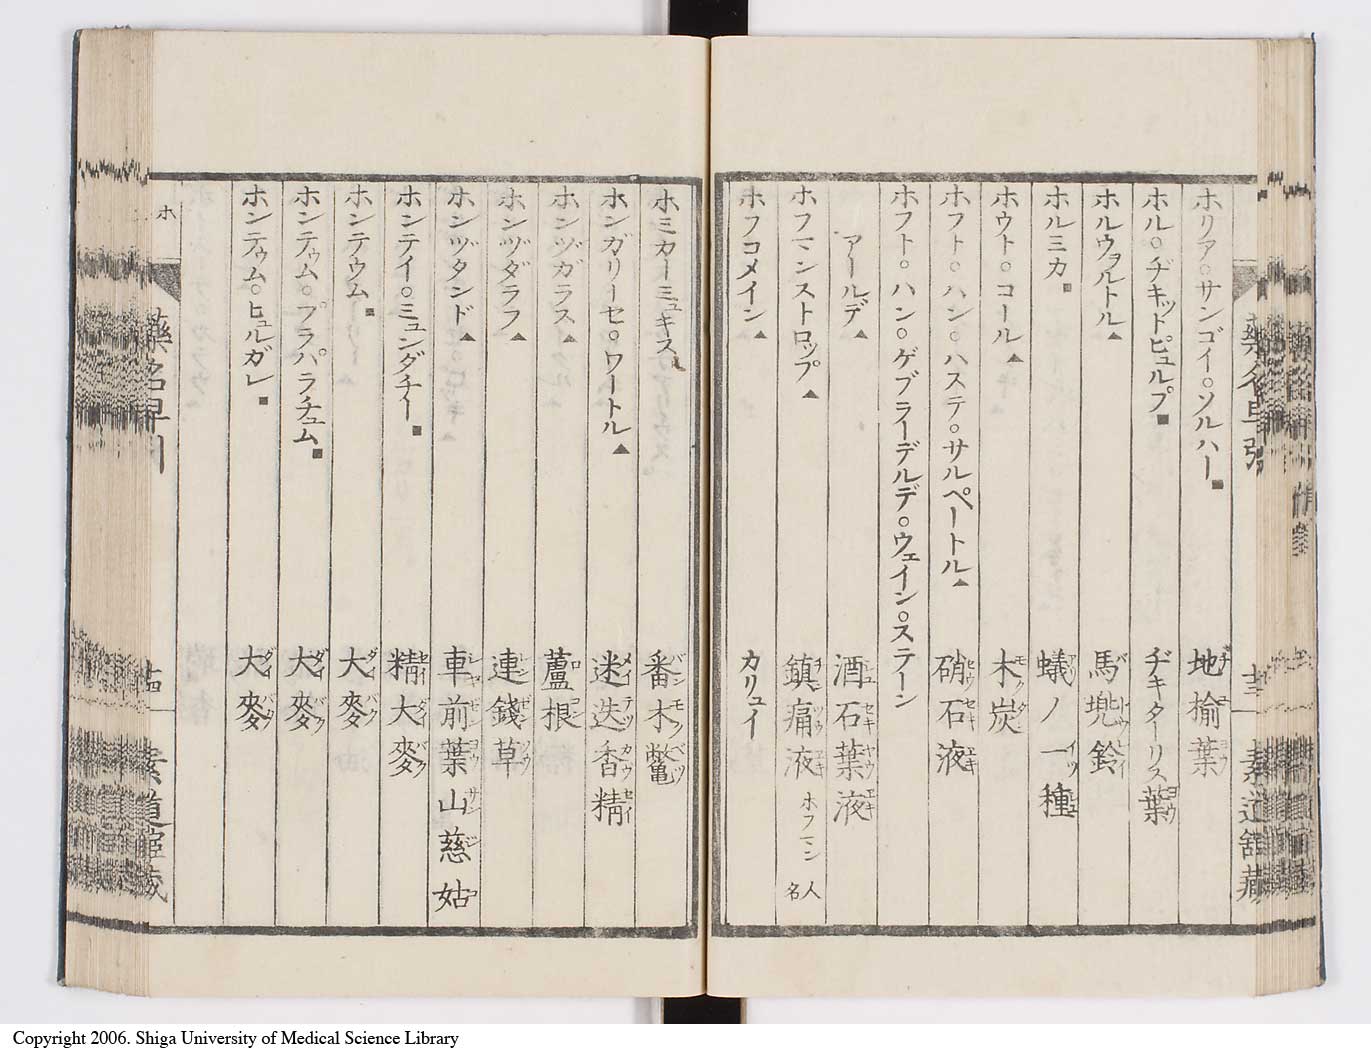 ホリア。サンゴイ。ソルハー■ 地榆葉
ホル。ヂキットピュルプ■ ヂキターリス葉
ホルウヲルトル▲ 馬兜鈴
ホルミカ■ 蟻ノ一種
ホウト。コール▲ 木炭
ホフト。ハン。ハステ。サルペートル▲ 硝石液
ホフト。ハン。ゲブラーデルデ。ウェイン。ステーン
アールデ▲ 酒石葉液
ホフマンストロップ▲ 鎮痛液 ホフマン人名
ホフコメイン▲ カリュイ
薬名早引
十三
素道舘藏
ホミカーミュキス 番木鼈
ホンガリーセ。ワートル▲ 迷迭香精
ホンヅガラス▲ 蘆根
ホンヅダラフ▲ 連錢草
ホンヅタンド▲ 車前葉山慈姑
ホンテイ。ミュンダチー■ 精大麥
ホンテウム■ 大麥
ホンテゥム。プラパラチュム■ 大麥
ホンテゥム。ヒュルガレ■ 大麥
ホ
藥名早引
素道舘藏
Copyright 2006. Shiga University of Medical Science Library